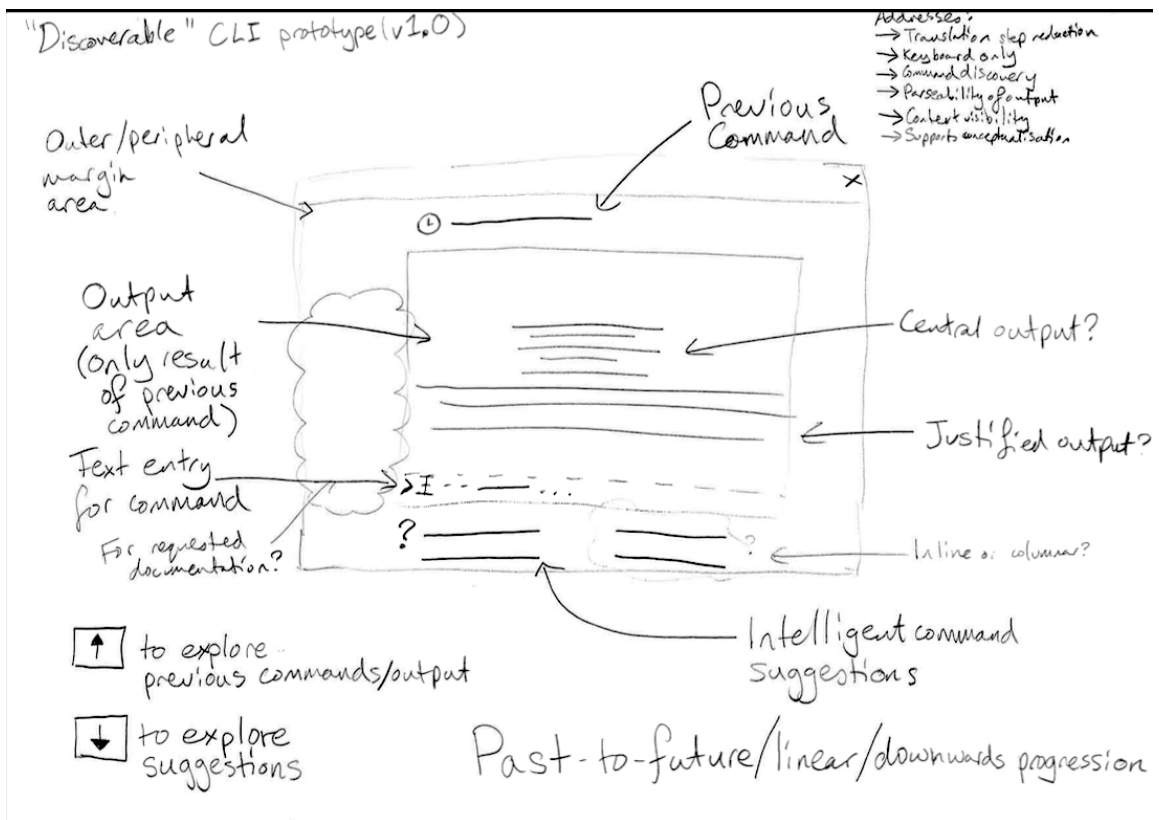 "Discoverable" CLI prototype (v1.0)
Addresses:
→ Translation step reduction
→ Keyboard only
→ Command discovery
→ Parseability of output
→ Context visibility
→ Supports conceptualisation
Outer/peripheral
margin
area
Previous
Command
x
Output
area
(only result
of previous
command)
Central output?
Justified output?
Text entry
for command
>I -- ...
For requested
documentation?
?
?
Inline or columnar?
Intelligent command
suggestions
↑ to explore
previous commands/output
↓ to explore
suggestions
Past-to-future/linear/downwards progression